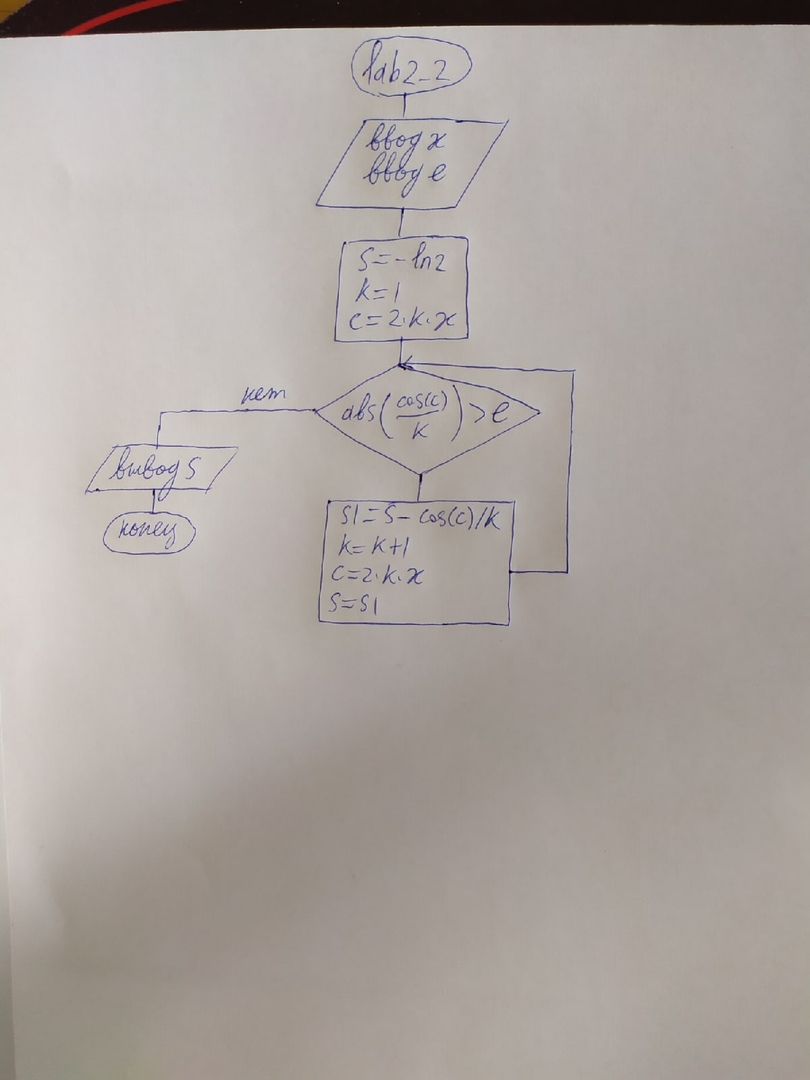 lab2_2
ввод x
ввод e
S=-ln2
k=1
c=2·k·x
abs(cos(c)/k)>e
нет
вывод S
конец
S1=S-cos(c)/k
k=k+1
c=2·k·x
S=S1